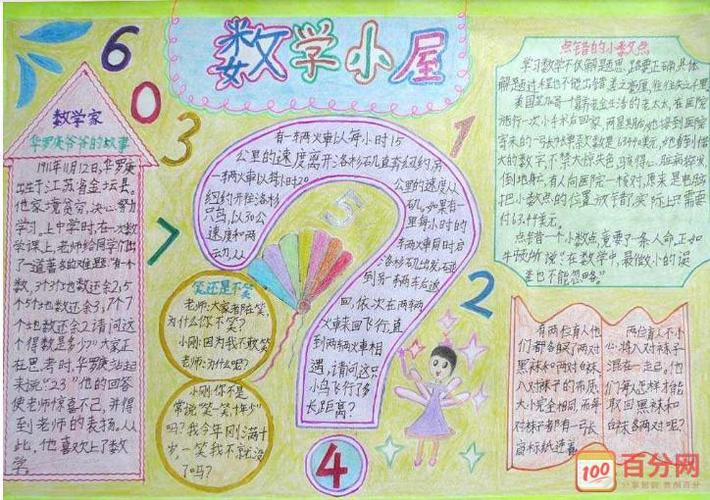 数学小屋
6
0
3
7
1
2
5
4
数学家
华罗庚爷爷的故事
1911年11月12日,华罗庚
出生于江苏省金坛县。
他家境贫穷,决心努力
学习。上中学时,在一次数
学课上,老师给同学们出
了一道著名的难题:"有一个
数,3个3个地数还余2,5
个5个地数还余3,7个7
个地数还余2,请问这
个得数是多少?"大家正
在思考时,华罗庚站起
来说:"23"他的回答
使老师惊喜不已,并得
到老师的表扬。从
此,他喜欢上了数
学。
有一辆火车以每小时15
公里的速度离开洛杉矶直奔纽约,另
一辆火车以每小时20
公里的速度从
纽约开往洛杉
矶。如果有
一只鸟,以30公
里每小时的
速度和两
车两车同时启
动,从
洛杉矶出发,碰
到另一辆车后返
回,依次在两辆
火车来回飞行,直
到两辆火车相
遇,请问,这只
小鸟飞行了多
长距离?
笑还是不笑
老师:大家都在笑,
为什么你不笑?
小刚:因为我不敢笑
老师:为什么呢?
小刚:你不是
常说"笑一笑,十年少"
吗?我今年刚满十
岁,一笑我不就没
了吗?
点错的小数点
学习数学不仅解题思路要正确,具体
解题过程也不能出错,差之毫厘,往往失之千里。
美国芝加哥一个靠养老金生活的老太太,在医院
施行一次小手术后回家,两星期后,她接到医院
寄来的一张帐单,款数是63440美元。她看到偌
大的数字,不禁大惊失色,骇得心脏病猝发,
倒地身亡。后来,有人向医院一核对,原来是电脑
把小数点的位置放错了,实际上只需要
付63.44美元。
点错一个小数点,竟要了一条人命。正如
牛顿所说:"在数学中,最微小的误
差也不能忽略。"
有两位盲人,他
们都各买了两对
黑袜和两对白袜,
八对袜子的布质、
大小完全相同,而每
对袜子都有一张
商标纸连着。
两位盲人不小
心将八对袜子
混在一起。他
们每人怎样才能
取回黑袜和
白袜各两对呢?
100
百分网